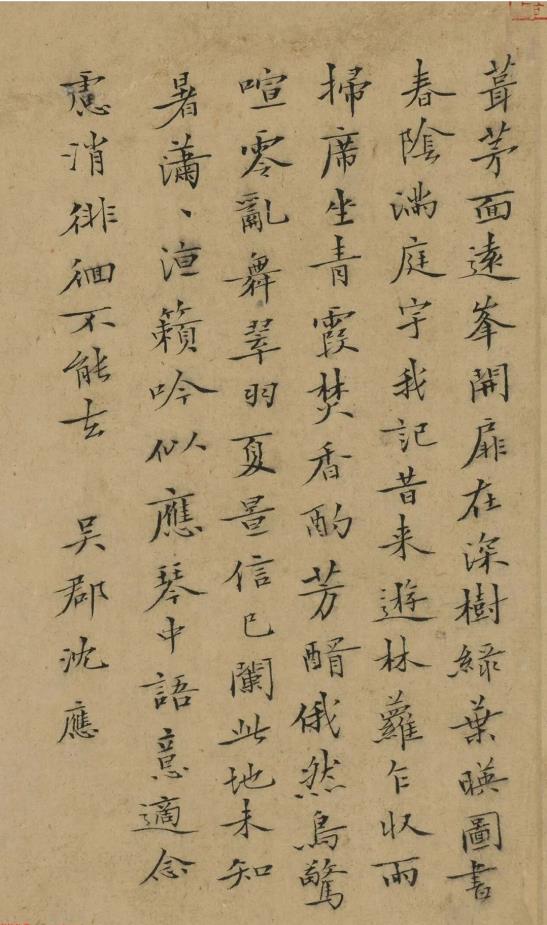 葺茅面遠峯開扉在深樹緑葉暎圖書
春陰滿庭宇我記昔来遊林蘿乍収雨
掃席坐青霞焚香酌芳醑俄然鳥驚
喧零亂舞翠羽夏景信已闌此地未知
暑瀟丶洹籟吟似應琴中語意適念
慮消徘徊不能去 吴郡沈應